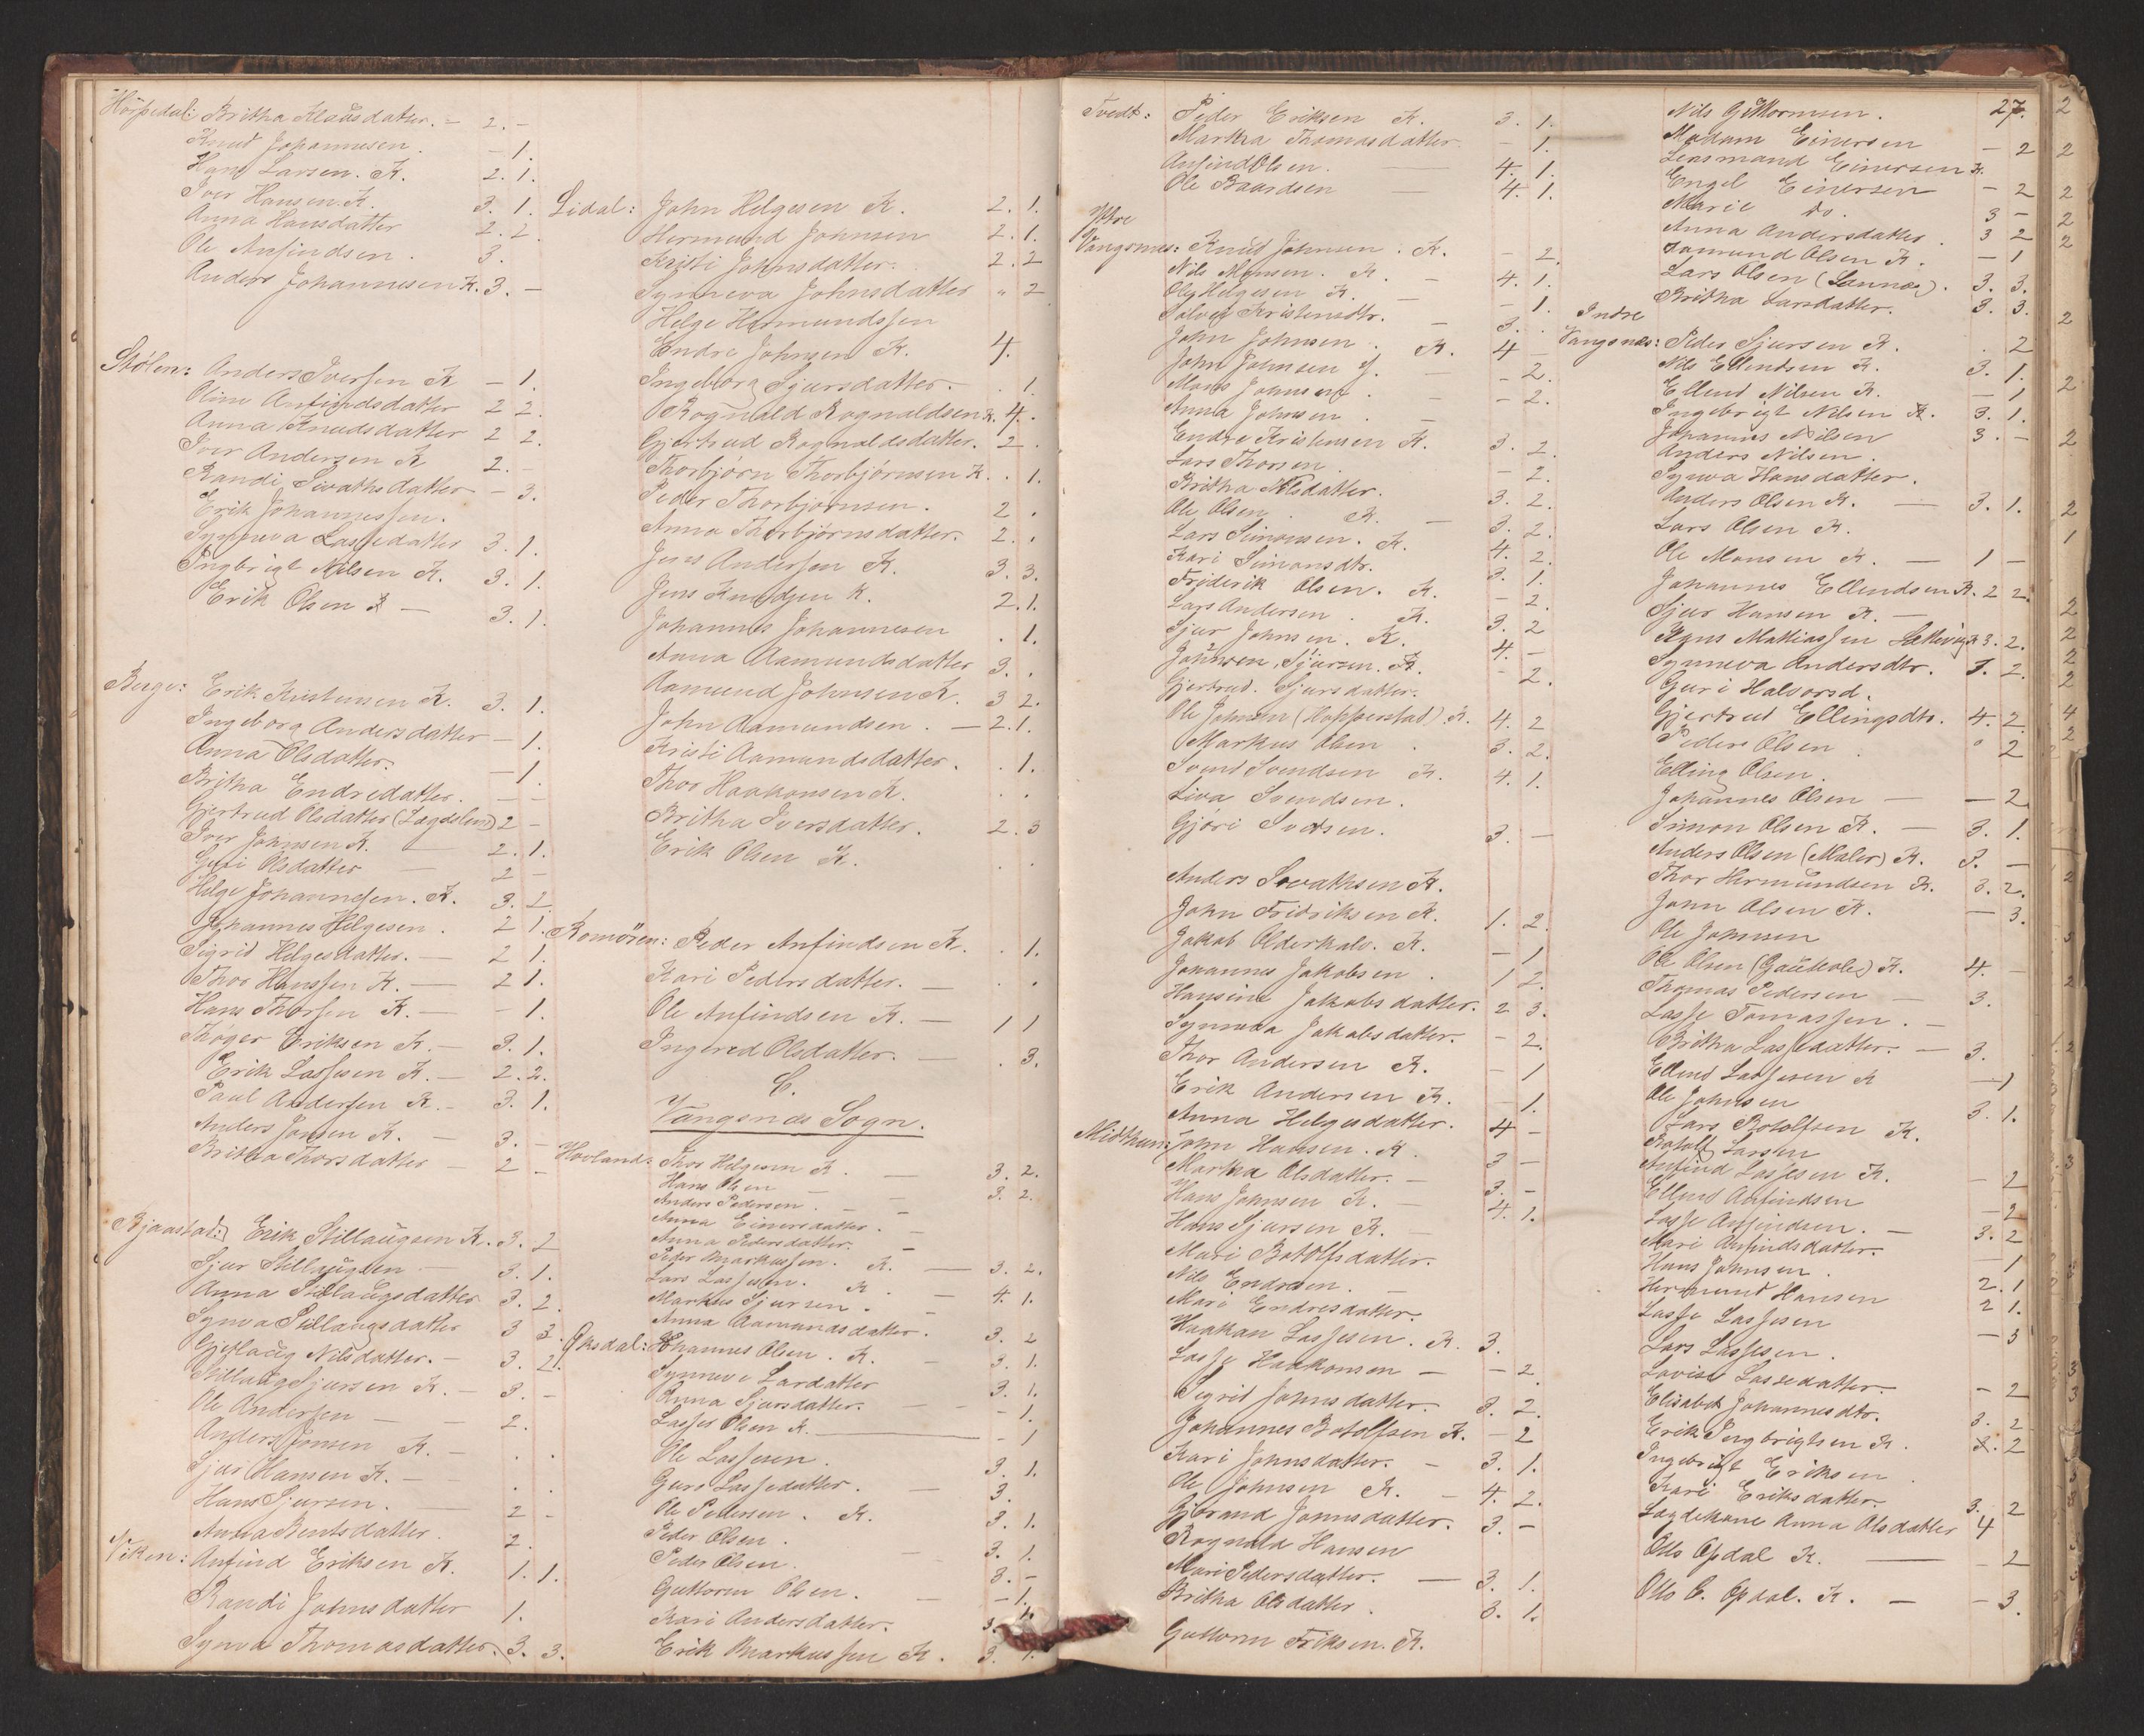 Britha Klausdatter. — 2. —
Knud Johannesen. — 1.
Hans Larsen. K. 2. 1.
Iver Hansen. K. 3. 1.
Anna Hansdatter 2. 2.
Ole Anfindsen. 3.
Anders Johannesen K. 3. —
Stølen: Anders Iversen K — 1.
Oline Anfindsdatter 2 2.
Anna Knudsdatter 2 2.
Iver Andersen K 2. —
Randi Sivathsdatter — 3.
Erik Johannessen.
Synneva Lassedatter 3. 1.
Ingbrigt Nilsen K. 3. 1.
Erik Olsen K — 3. 1.
Berge: Erik Kristensen K. 3. 1.
Ingeborg Andersdatter — 1.
Anna Olsdatter. — 1.
Britha Endredatter. — —
Gjertrud Olsdatter (Lægdelem) 2 —
Iver Johnsen K. — 2. 1.
Guri Olsdatter — 2 —
Helge Johannesen. K. 3. 2.
Johannes Helgesen. 2 1.
Sigrid Helgesdatter. — 2 1.
Thor Hanssen K. — 2 1.
Hans Thorsen K. — — 1.
Thøger Eriksen K. — 3. 1.
Erik Lassesen K. — 2. 2.
Paul Andersen K. — 3. 1.
Anders Jonsen K. — 3. —
Britha Thorsdatter — 2 —
Bjaastad: Erik Stillaugsen K. 3. 2
Sjur Stillaugsen — 3. 1.
Anna Stillaugsdatter 3. 2.
Synva Stillaugsdatter 3 3.
Gjetlaug Nilsdatter. — 3. 2.
Stillaug Sjursen K. — 3. —
Ole Andersen — — 2.
Anders Jonsen K. — . .
Sjur Hansen K. — . .
Hans Sjursen. — 2 —
Anna Bentsdatter. 2.
Viken: Anfind Eriksen K. 1. 1.
Randi Johnsdatter 1.
Synva Thomasdatter. 3. 3.
Lidal: John Helgesen K. 2. 1.
Hermund Johnsen 2. 1.
Kristi Johnsdatter. 2. 2
Synneva Johnsdatter " 2
Helge Hermundssen
Endre Johnsen K. 4.
Ingeborg Sjursdatter. . 1.
Rognald Rognaldsen K. 4.
Gjertrud Rognaldsdatter. 2 .
Thorbjørn Thorbjørnsen K. . 1.
Peder Thorbjørnsen. 2 .
Anna Thorbjørnsdatter. 2. .
Jens Andersen K. 3. 3.
Jens Knudsen K. 2. 1.
Johannes Johannesen . 1.
Anna Aamundsdatter 3. .
Aamund Johnsen K. 3 2.
John Aamundsen. — 2. 1.
Kristi Aamundsdatter. . 1.
Thor Haakonsen K. . .
Britha Iversdatter. 2. 3
Erik Olsen K. . .
Romøren: Peder Anfindsen K. . 1.
Kari Pedersdatter. — . .
Ole Anfindsen K. — 1 1
Ingered Olsdatter. — . 3.
C.
Vangsnæs Sogn.
Hovland: Thor Helgesen K. — 3. 2.
Hans Olsen — — 3. 2.
Anders Pedersen. — —
Anna Einersdatter. —
Anna Pedersdatter. —
Peder Markussen. K. — 3. 2.
Lars Lassesen. K — 4. 1.
Markus Sjursen. —
Anna Aamundsdatter. 3. 2
Johannes Olsen. K. — 3. 1.
Synneve Lardatter 3. 1.
Anna Sjursdatter. — — 1.
Lasses Olsen K. — — 1
Ole Lassesen. 3. 1.
Guro Lassedatter. — 3.
Ole Pedersen. K. 3. 1.
Peder Olsen. — 3. 1.
Peder Olsen. 3. —
Guttorm Olsen. — — 1.
Kari Andersdatter. 3.
Erik Markussen K. 3. 1.
Tvedt: Peder Eriksen K. 3. 1.
Martha Thomasdatter. — 1.
Anfind Olsen. — 4. 1.
Ole Baardsen — 4. 1.
Ytre
Vangsnæs: Knud Johnsen. K. — 2.
Nils Monsen. K. — 4. 1.
Ole Helgesen K. — — 1.
Solvei Kristensdtr. — 3. .
John Johnsen. K. 4 —
John Johnsen J. — — 2.
Mons Johnsen. — — 2.
Anna Johnsen. —
Endre Kristensen K. 3. 2.
Lars Thorsen. — 2.
Britha Nilsdatter. 3. 2.
Ole Olsen. K. — 3. 2.
Lars Simonsen. K. 4. 2.
Kari Simonsdtr. 3. 1.
Friderik Olsen. K. — 2.
Lars Andersen. K. 3. 2
Sjur Johnsen. K. 4. —
Johnsen, Sjursen. K. — 2.
Gjertrud. Sjursdatter.
Ole Johnsen (Hopperstad). K. 4. 2
Markus Olsen. 3. 2.
Svend Svendsen K. 4. 1.
Liva Svendsen.
Gjøri Svensen. 3. —
Anders Sivathsen K.
John Fridriksen K. 1. 2.
Jakob Olderkalv. K. — 1
Johannes Jakobsen. 1 2.
Hansine Jakobsdatter. 2 3.
Synneva Jakobsdatter. — 2.
Thor Andersen K. — 1
Erik Andersen K. — 1.
Anna Helgesdatter. 4 —
Midthun: John Hansen. K. 3 —
Martha Olsdatter. — 3. —
Hans Johnsen K. — 4. 1.
Hans Sjursen K. —
Mari Botolfsdatter.
Nils Endresen. —
Mari Endresdatter.
Haakan Lassesen. K. 3.
Lasse Haakonsen — — 2.
Sigrid Johnsdatter. 3. 2.
Johannes Botolfsen K. — 2
Kari Johnsdatter. — 3. 1.
Ole Johnsen K. — 4. 2.
Gjørand Johnsdatter. 3. —
Rognald Hansen
Mari Pedersdatter. — 3. 1.
Britha Olsdatter. 3. 1.
Guttorm Eriksen. K.
27.
Nils Guttormsen.
Madam Einersen — 2
Lensmand Einersen K.
Engel Einersen — 2
Marie do. 3 —
Anna Andersdatter. 3 2
Aamund Olsen K. — 1
Lars Olsen 3. 3.
Britha Larsdatter. 3. 3.
Indre
Vangsnæs: Peder Sjursen K. . 2
Nils Ellendsen K. 3. 1.
Ellend Nilsen K. — 1
Ingebrigt Nilsen K. 3. 1.
Johannes Nilsen 3. —
Anders Nilsen.
Synva Hansdatter.
Anders Olsen K. — 3. 1.
Lars Olsen K.
Ole Monsen K. — 1 —
Johannes Ellendsen K. 2 2.
Sjur Hansen K. —
Mathiassen 3. 2.
Synneva Andersdtr. 2.
Guri Halvorsd.
Gjertrud Ellingsdtr. 4. 2.
Peder Olsen. 2
Elling Olsen.
Johannes Olsen — — 2
Simon Olsen K. — 3. 1.
Anders Olsen (Maler) K. 3. —
Thor Hermundsen K. 3. 2.
John Olsen K. — 3.
Ole Johnsen
Ole Olsen K. 4. —
Thomas Pedersen — 3.
Lasse Tomassen. —
Britha Lassedatter. — 3.
Ellend Lassesen K — 1
Ole Johnsen 3. 1.
Lars Botolfsen K.
Botolf Larsen
Anfind Lassesen K. — 2
Ellend Anfindsen — 2
Lasse Anfindsen. — 3. 2
Mari Anfindsdatter. — 1
Hans Johnsen. 2. 1
Hermund Hansen 2 1.
Lasse Lassesen — 3
Lars Lassesen.
Lovise Lassedatter. — 2
Elisabet Johannesdtr. 3. 2
Erik Ingbrigtsen K. 3. 2
Ingebrigt Eriksen.
Kari Eriksdatter. 3. 2
Lægdekone Anna Olsdatter 4
Otto Opdal K. — — 2
Otto C. Opdal. K. — — 3.